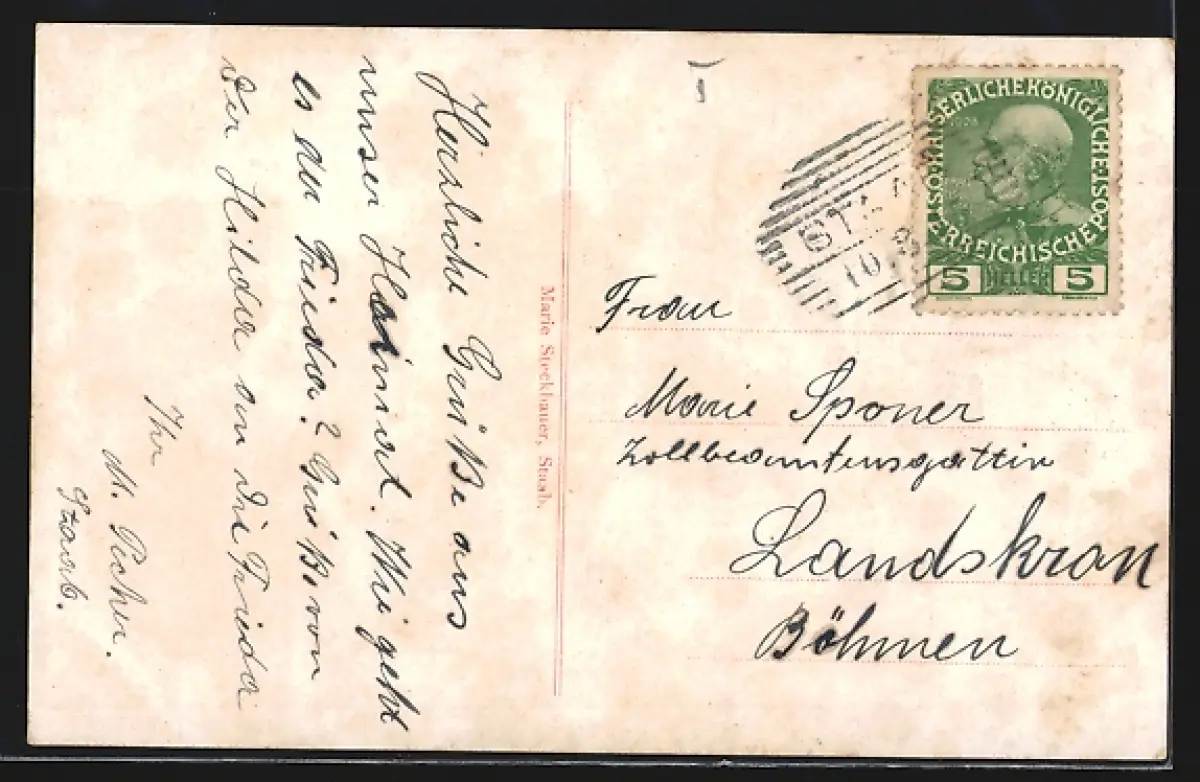 Herzliche Grüße aus
unser Heimat. Wie geht
es der Frieda? Grüße von
der Hilda an die Frieda
Ihr
M. Pecher.
Staab.
Marie Steckbauer, Staab.
KAISERLICHEKÖNIGLICHE ÖSTERREICHISCHE POST
1908
5 HELLER 5
ST
10
Frau
Marie Sponer
Zollbeamtensgattin
Landskron
Böhmen